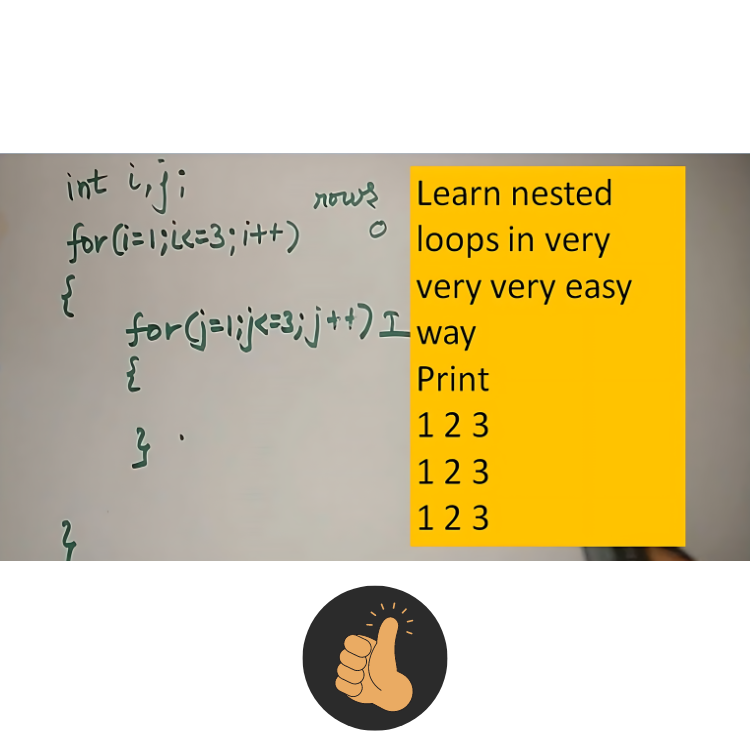 int i,j;
rows
for(i=1;i<=3;i++)
O
{
for(j=1;j<=3;j++) I
{
}
}
Learn nested
loops in very
very very easy
way
Print
1 2 3
1 2 3
1 2 3